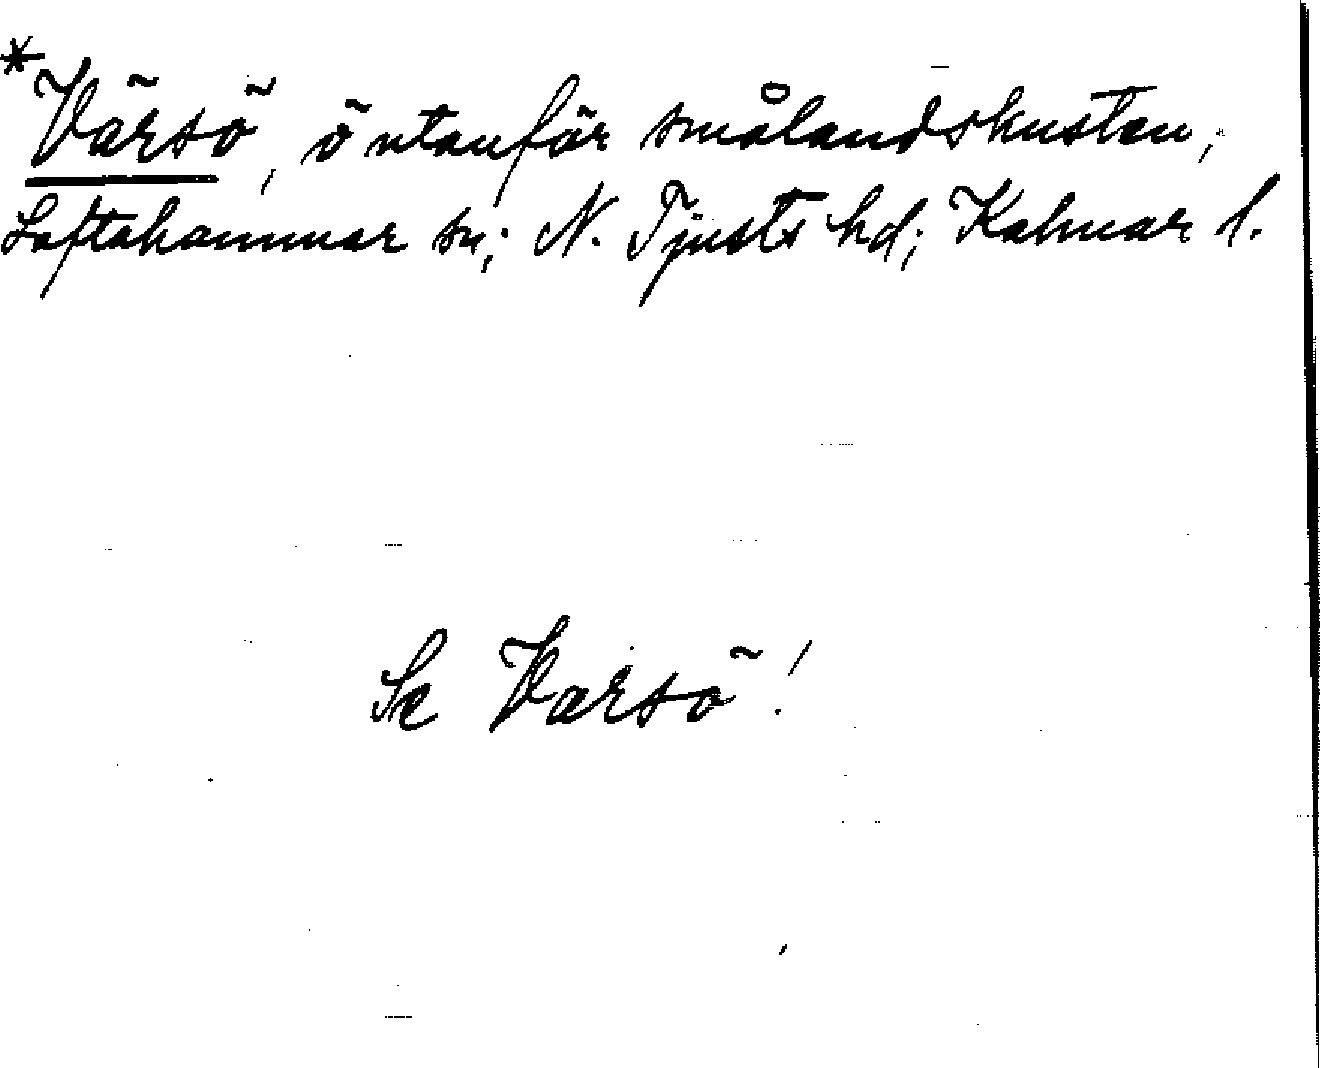 *Värsö, ö utanför smålandskusten,
Loftahammar sn; N. Tjusts hd; Kalmar l.
Se Varsö!